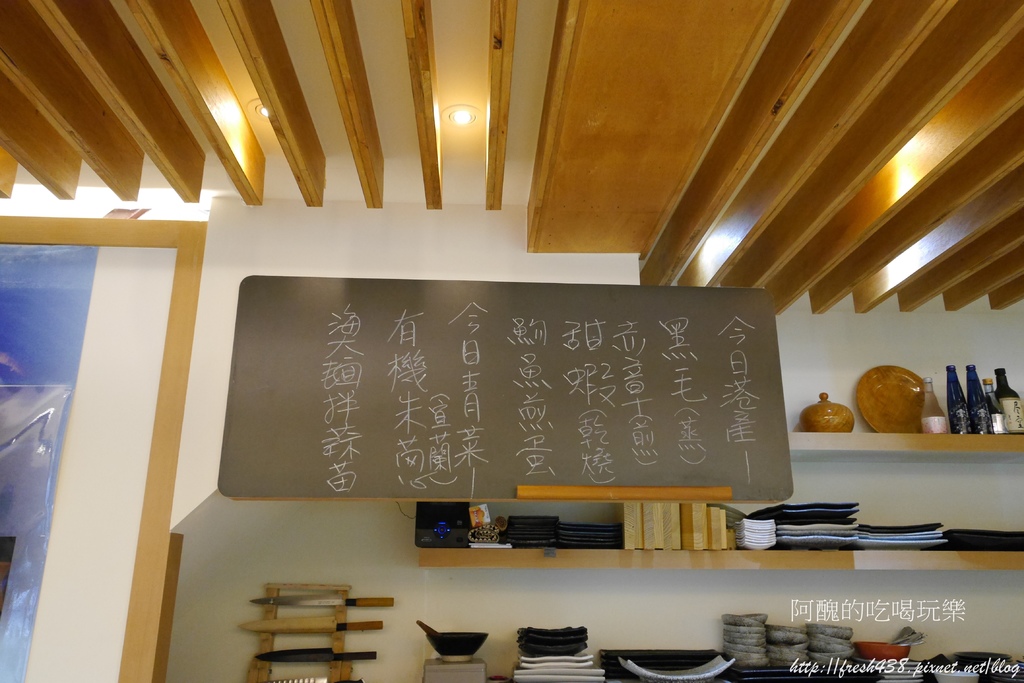 今日港產-
黑毛(蒸)
赤章干(煎)
甜蝦(乾燒)
魩魚煎蛋
今日青菜-
(宜蘭)
有機朱茼心
漁麵拌蒜苗
阿醜的吃喝玩樂
http://fresh438.pixnet.net/blog